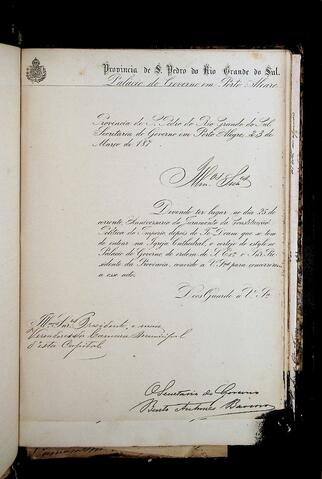 Provincia de S. Pedro do Rio Grande do Sul.
Palacio do Governo em Porto Alegre
Provincia de S. Pedro do Rio Grande do Sul
Secretaria do Governo em Porto Alegre, 23
Março de 187
Illmos Senres
Devendo ter lugar no dia 25 do
corrente, Anniversario do Juramento da Constituição
Politica do Imperio, depois do Te-Deum que se tem
de entoar na Igreja Cathedral, o cortejo do estylo no
Palacio do Governo de ordem de S. Exª o Snr Pre-
sidente da Provincia, convido a V. Sªs para concorrerem
a esse acto.
Deos Guarde a V. Sªs
Presidente, e mais
Vereadores da Camara Municipal
d'esta Capital.
O Secretario do Governo
Bento Antonio